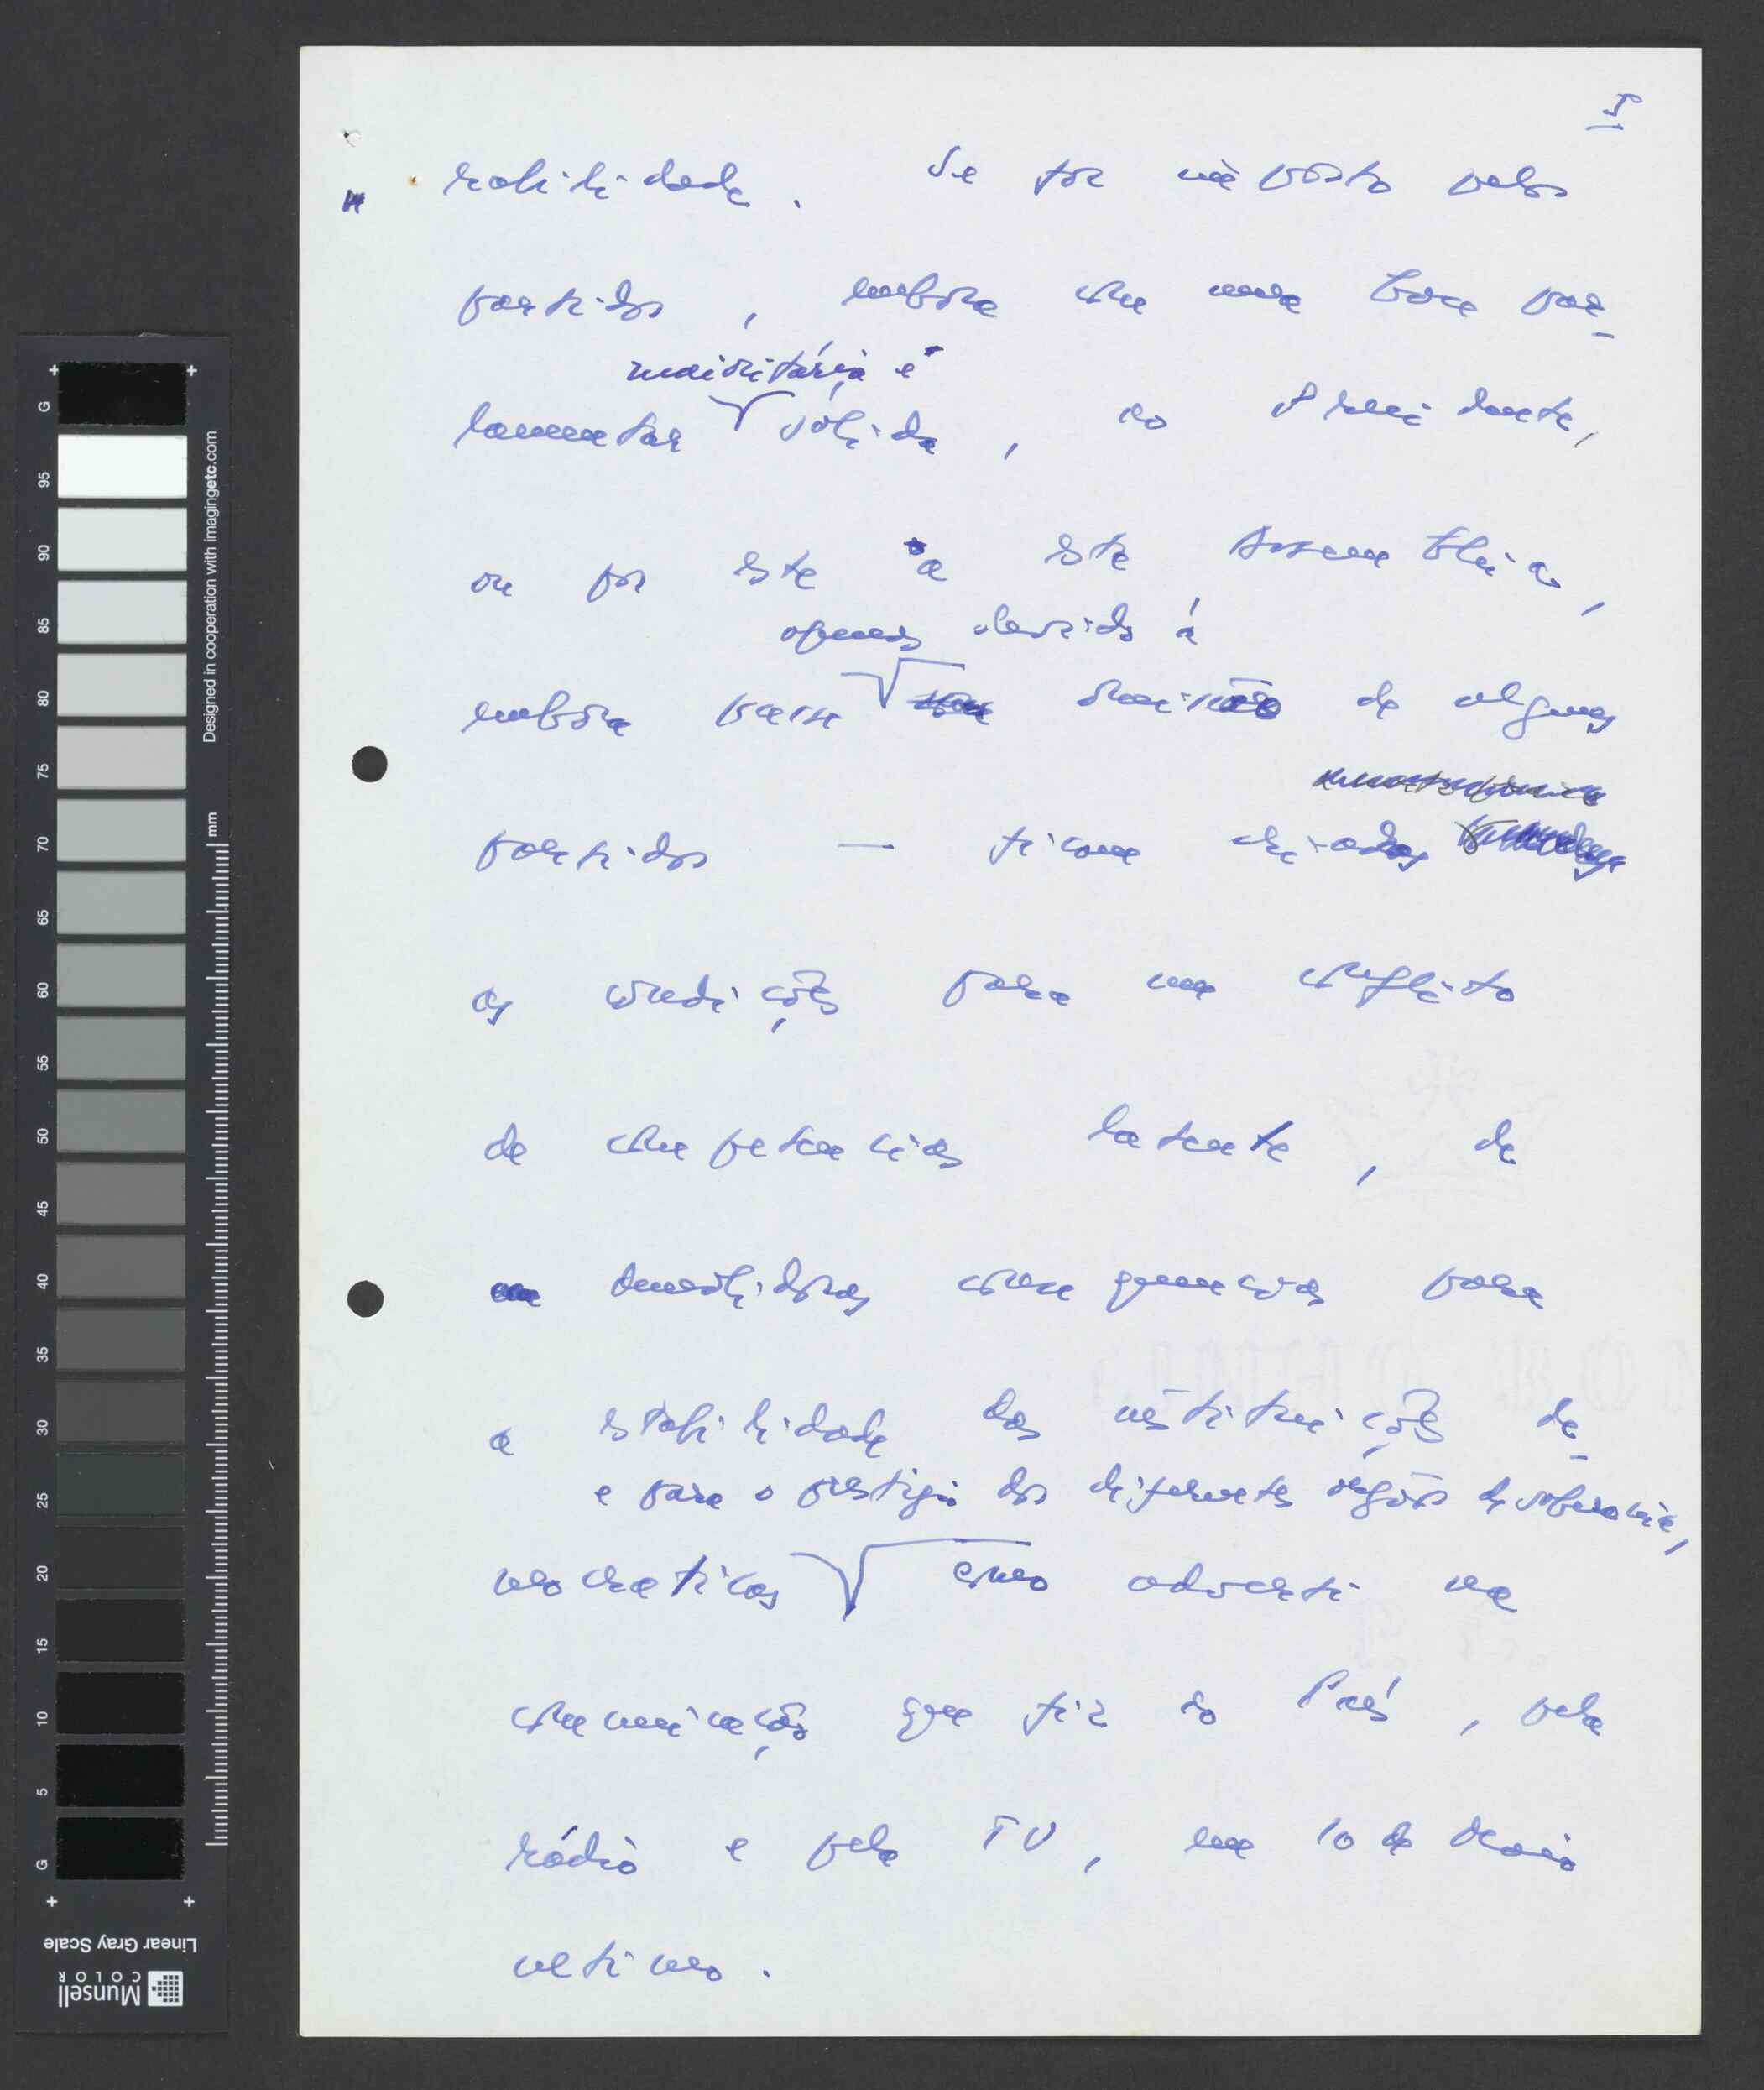 5
rabilidade. Se for imposto pelos
partidos, embora com uma base par-
maioritária e
lamentar sólida, ao Presidente,
ou por este a esta Assembleia,
apenas devido à
embora sem omissão de alguns
partidos — ficam criadas
as condições para um conflito
de competências latente, de
demolidoras consequências para
a estabilidade das instituições de-
e para o prestígio dos diferentes orgãos de soberania,
mocráticas como adverti na
comunicação que fiz ao País, pela
rádio e pela TV, em 10 de Maio
ultimo.
G
95
90
85
80
75
70
65
60
55
50
45
40
35
30
25
20
15
10
5
G
mm
Designed in cooperation with imagingetc.com
Linear Gray Scale
Munsell
COLOR